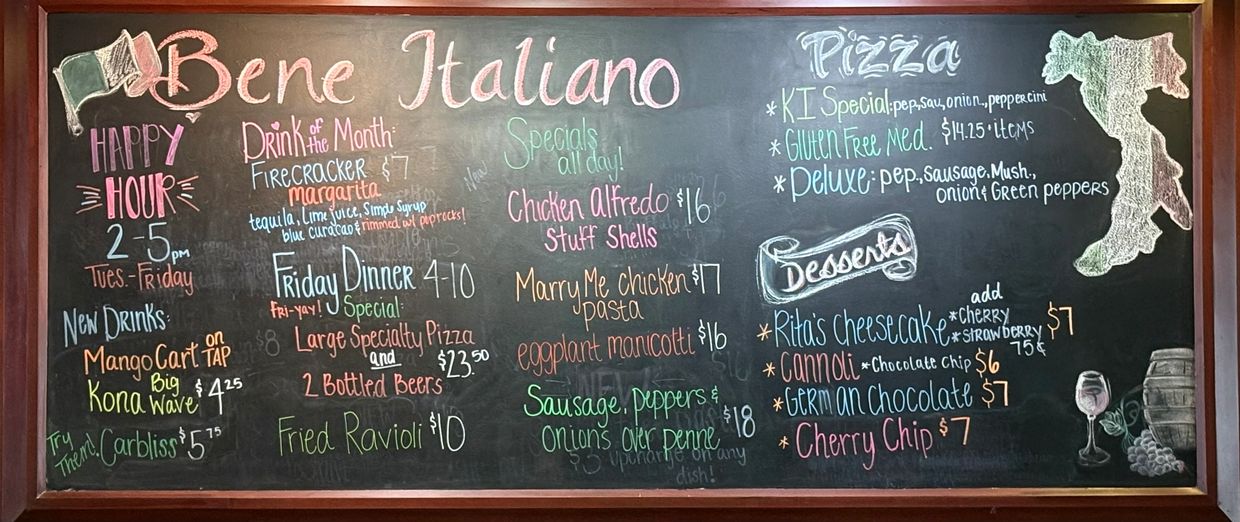 Bene Italiano
HAPPY
HOUR
2-5pm
Tues.-Friday
New Drinks:
Mango Cart on TAP
Kona Big Wave $4.25
Try Them! Carbliss $5.75
Drink of the Month:
Firecracker $7
margarita
tequila, lime juice, Simple Syrup
blue curacao & rimmed w/ pop rocks!
Friday Dinner 4-10
FRI-yay! Special:
Large Specialty Pizza
and $23.50
2 Bottled Beers
Fried Ravioli $10
Specials
all day!
Chicken Alfredo $16
Stuff Shells
Marry Me chicken $17
pasta
eggplant manicotti $16
Sausage, Peppers &
Onions over penne $18
$3 upcharge on any
dish!
Pizza
* KI Special: pep, sau, onion, peppercini
* Gluten Free Med. $14.25 + items
* Deluxe: pep., Sausage, Mush.,
onion & Green peppers
Desserts
add
* Rita's Cheesecake *CHERRY $7
*STRAWBERRY
75¢
* Cannoli *Chocolate Chip $6
* German Chocolate $7
* Cherry Chip $7